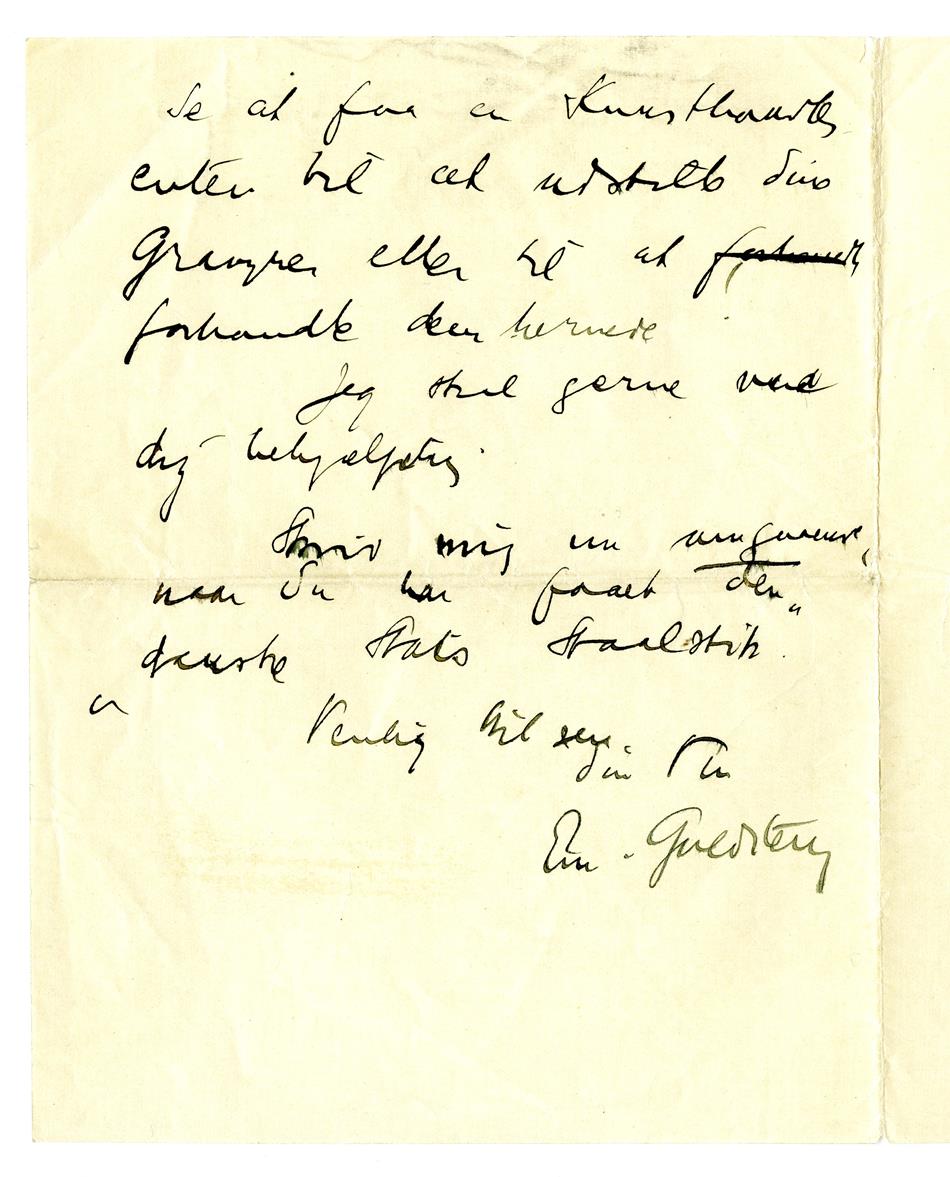 Se at faa en Kunsthandler
enten til at udstille dine
Gravyrer eller til at forhandle
forhandle dem hernede
Jeg skal gerne være
dig behjælpelig
Skriv mig nu omgaaende,
naar Du har faaet den
danske Stats Staalstik.
Venlig Hilsen
din Ven
Em. Goldstein